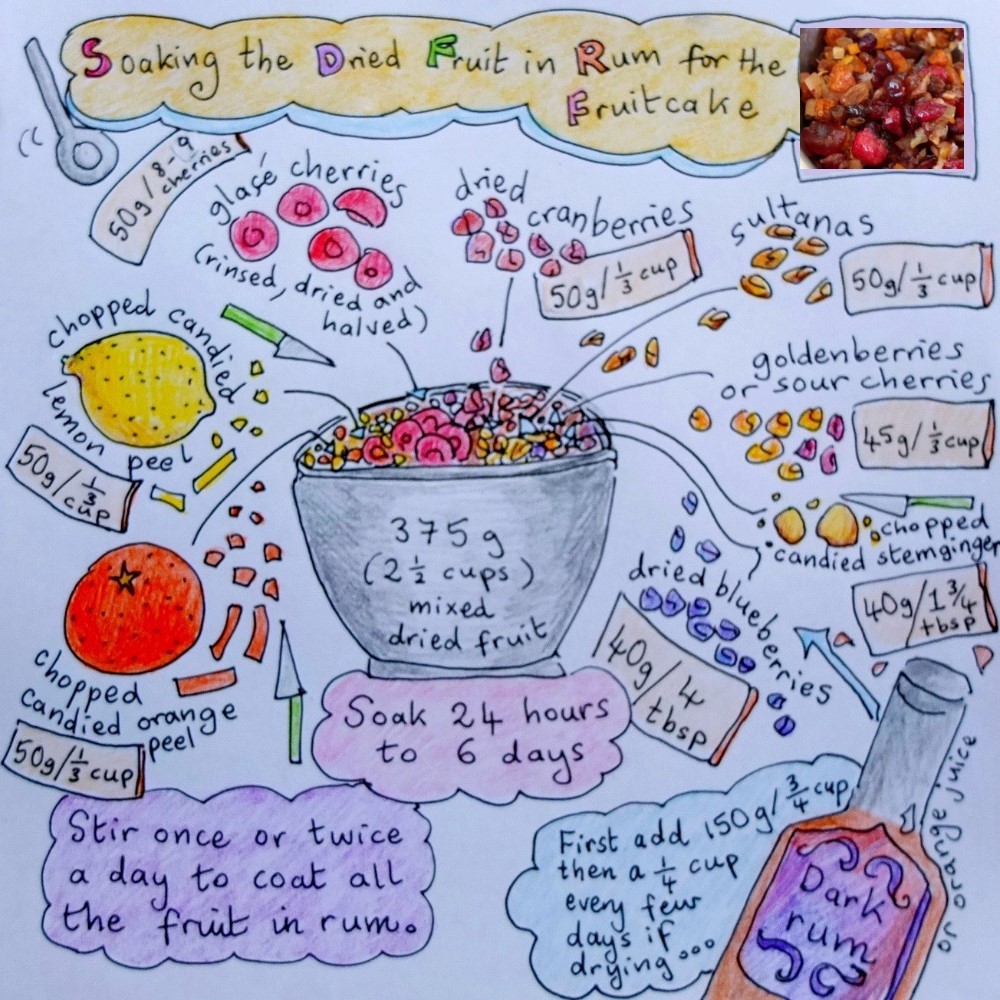 Soaking the Dried Fruit in Rum for the
Fruitcake
50g/8-9
cherries
glasé cherries
(rinsed, dried and
halved)
dried
cranberries
50g/1/3 cup
sultanas
50g/1/3 cup
chopped candied
lemon peel
50g/1/3
cup
goldenberries
or sour cherries
45g/1/3 cup
375g
(2 1/2 cups)
mixed
dried fruit
chopped
candied stemginger
40g/1 3/4
tbsp
dried blueberries
40g/4
tbsp
chopped
candied orange
peel
50g/1/3 cup
Soak 24 hours
to 6 days
Stir once or twice
a day to coat all
the fruit in rum.
First add 150g/3/4 cup
then a 1/4 cup
every few
days if
drying...
Dark
rum
or orange juice